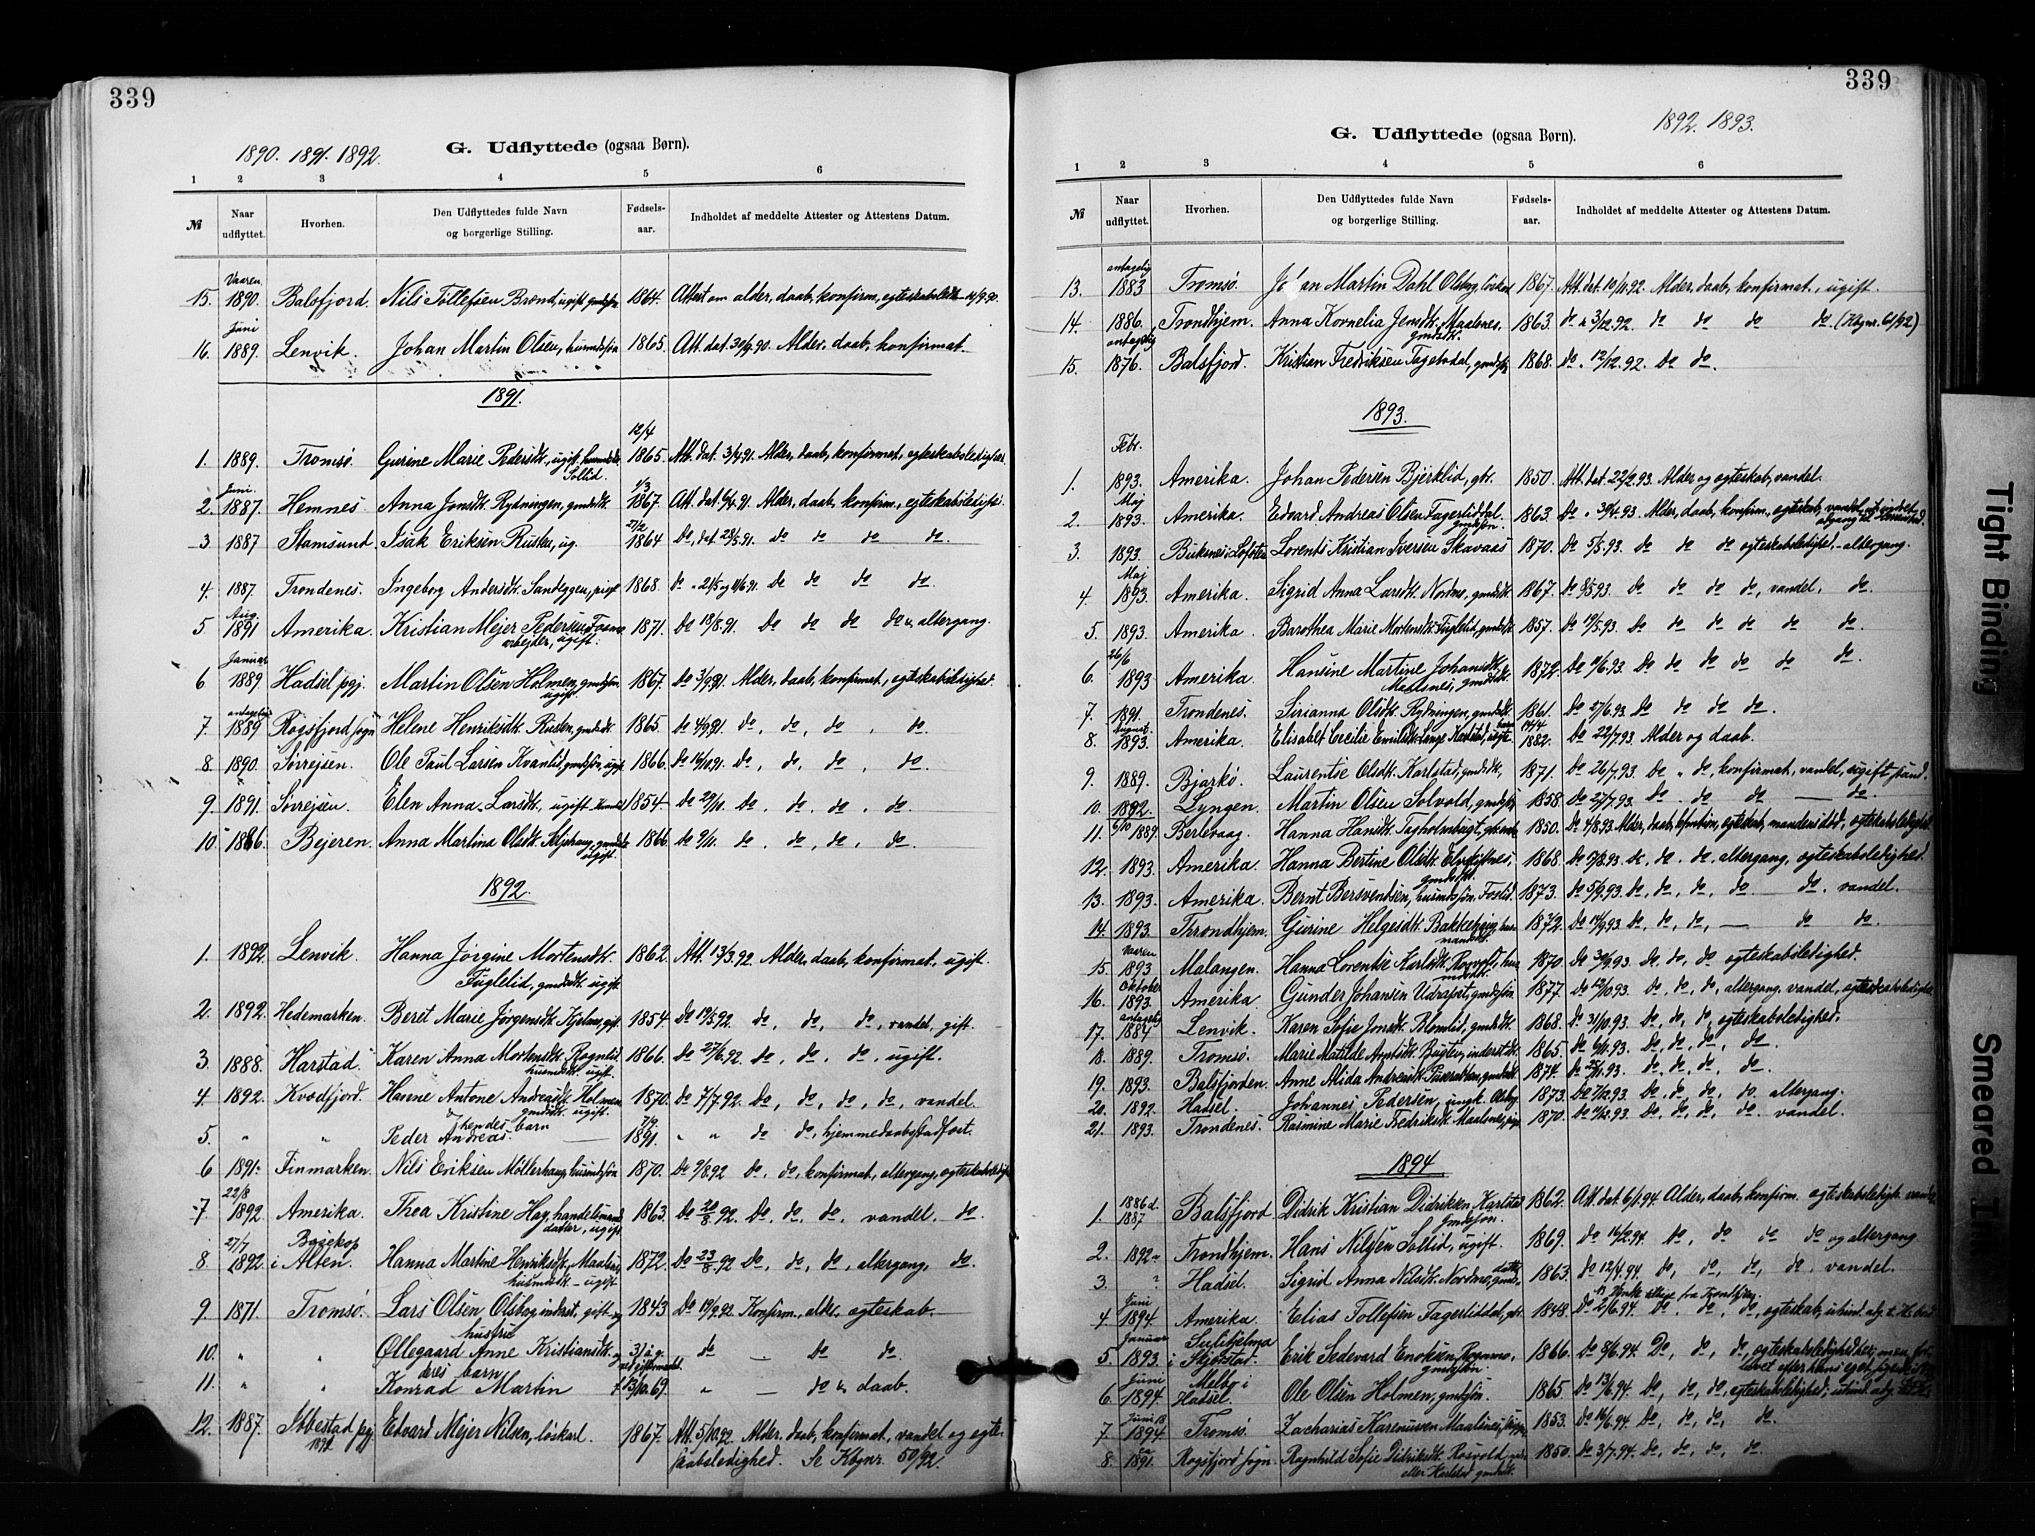 339
1890. 1891. 1892.
G. Udflyttede (ogsaa Børn).
1 2 3 4 5 6
№ Naar udflyttet. Hvorhen. Den Udflyttedes fulde Navn og borgerlige Stilling. Fødsels-aar. Indholdet af meddelte Attester og Attestens Datum.
Vaaren
15. 1890. Balsfjord. Nils Tollefsen Brænd, ugift gmdsøn 1864. Attest om alder, daab, konfirm, egteskabsledh.
Juni
16. 1889. Lenvik. Johan Martin Olsen, husmdssøn 1865. Att. dat. 30/9.90. Alder, daab, konfirmat.
1891.
12/4
1. 1889. Tromsø. Gurine Marie Pedersdt., ugift, 1865. Att. dat. 3/4.91. Alder, daab, konfirmat, egteskabsledighed.
Soltid.
Juni. 1/3
2. 1887. Hemnes. Anna Jonsdt. Rydningen, gmdsdt. 1867. Alder, daab, konfirm., egteskabsledighd.
27/2
3. 1887 Stamsund. Isak Eriksen Rusten, ug. 1864 Do, dat. 23/5.91. do do do do.
4. 1887. Trondenes. Ingeborg Andersdt. Sandeggen, pige 1868. do do do do do.
Aug.
5 1891 Amerika. Kristian Mejer Pedersen 1871. Do 18/8.91. Do do do do, altergang.
arbejder, ugift.
Januar
6 1889. Hadsel pgj. Martin Olsen Holmen, gmdsøn 1867. Do Alder, daab, konfirmat, egteskabsledighed.
ugift.
antagelig
7. 1889 Røgsfjord sogn Helene Henriksdt. Rusten, gmdsdt. 1865. do do, do, do, do.
8. 1890. Sørrejsen. Ole Paul Larsen Kvanlid, gmdsøn, ugift 1866. Do 16/10.91. do, do, do, do.
9. 1891. Sørrejsen. Elen Anna Larsdt. ugift. 1854. do 29/10. do, do, do, do.
10 1866. Bejeren. Anna Martina Olsdt. 1866. do 9/11. do, do, do, do.
ugift.
1892.
1. 1892. Lenvik. Hanna Jørgine Mortensdt. 1862. Att. 13/3.92. Alder, daab, konfirmat, ugift.
Fuglelid, gmdsdt. ugift.
2. 1892. Hedemarken. Beret Marie Jørgensdt. 1854. Do 19/5.92 do, do, do, vandel, gift.
3. 1888. Harstad. Karen Anna Mortensdt. Rognlid 1866. do 27/6.92. do, do, do, ugift.
husmdsdt. ugift.
4. 1892. Kvædfjord. Hanne Antone Andreasdt. Holmen 1870. do 7/7.92. Do, do, do, do, vandel.
gmdsdt. ugift.
hendes barn 7/9
5. " " Peder Andreas. 1891. " " do do, hjemmedaab stadfæst.
6 1891. Finmarken. Nils Eriksen Møllerhaug, husmdssøn 1870. Do 9/8.92 do, do, konfirmat, altergang, egteskabsledighd.
22/8
7 1892. Amerika. Thea Kristine Hay, handelsmands 1863. Do 20/8.92. Do, do, do, vandel. do.
datter, ugift.
27/7 Bosekop
8. 1892. i Alten. Hanna Martine Henriksdt. Maalsnes, 1872. Do 23/8.92 Do, do, do, altergang, do.
husmdsdt - ugift
9. 1871. Tromsø. Lars Olsen Olsborg, inderst, gift og 1843 Do 19/9.92. Konfirm., alder, egteskab.
hustru
10. " " Øllegaard Anne Kristiansdt. og 31 a. g. do — do do.
deres barn ved giftermaalet
11. " " Konrad Martin f. 13/10.69. " — do & daab.
12. 1887. Ibbestad pgj. Edvard Mejer Nilsen, løskarl. 1867. Att. 5/10.92. Alder, daab, konfirmat, vandel og egte-
skabsledighed. Se Kbgnr. 50/92.
339
1892. 1893.
G. Udflyttede (ogsaa Børn).
1 2 3 4 5 6
№ Naar udflyttet. Hvorhen. Den Udflyttedes fulde Navn og borgerlige Stilling. Fødsels-aar. Indholdet af meddelte Attester og Attestens Datum.
antagelig
13. 1883 Tromsø. Johan Martin Dahl Olsborg, løskarl 1867. Att. dat. 10/11.92. Alder, daab, konfirmat., ugift.
14. 1886. Trondhjem. Anna Kornelia Jensdt. Maalsnes. 1863. do " 3/12.92. do do do do. (Kbgnr. 61/92)
gmdsdt.
antagelig
15. 1876. Balsfjord. Kristian Fredriksen Fagerdal, gmdsøn 1868. do " 12/12.92. Do do.
1893.
Febr.
1. 1893. Amerika. Johan Pedersen Bjerklid, gbr. 1850. Att. dat. 22/2.93. Alder og egteskab, vandel.
Maj
2. 1893. Amerika. Edvard Andreas Olsen Fagerliddal. 1863. Do " 30/4.93. Alder, daab, konfirm, egteskab, vandel
gmdssøn
3. 1893. Buksnes i Lofoten Lorents Kristian Iversen Skavaas 1870. Do 5/5.93. do do do egteskabsledighed, altergang.
Maj
4. 1893. Amerika. Sigrid Anna Larsdt. Nordmo, gmdsdt. 1867. do 8/5.93. do do do do, vandel, do.
5. 1893. Amerika. Barothea Marie Mortensdt. Fuglelid, gmdsdt. 1857. Do 19/5.93. do do do do do do.
26/6
6. 1893 Amerika. Hansine Martine Johansdt. 1872. Do 11/6.93. do do do do do do.
Maalsnes, gmdsdt.
7. 1891. Trondenes. Sirianna Olsdt. Rydningen, gmdsdt. 1861. Do 27/6.93 do do do do.
August 14/4
8. 1893. Amerika. Elisabet Cecilie Emilsdt. Lange Karlstad, 1882. Do 22/7.93. Alder og daab.
9. 1889. Bjarkø. Laurentse Olsdt. Karlstad, gmdsdt. 1871. Do 26/7.93. Do " do, konfirmat, vandel, ugift stand.
10. 1882. Lyngen. Martin Olsen Solvold, gmdsøn 1858. Do 27/7.93. do do do — do.
11. 6/10 1889. Berlevaag. Hanna Hansdt. 1850. Do 4/8.93. Alder, daab, konfirm, egteskab, mandens død, egteskabsledighed
12. 1893. Amerika. Hanna Bertine Olsdt. 1868. Do 5/8.93. do, do. do, altergang, egteskabsledighed.
gmdsdt.
13. 1893. Amerika. Bernt Bersvendsen, husmdssøn, Foslid. 1873. Do 5/9.93. do, do, do, do do. vandel.
14. 1893. Throndhjem. Gurine Helgesdt. Bakkehaug, hus- 1872. Do 14/9.93. do, do, do, — do do.
mandsdt.
Vaaren
15. 1893 Malangen. Hanna Lorentse Karlsdt. Rosvold, hus- 1870. Do 30/9.93. do, do, do egteskabsledighed.
Oktober
16. 1893. Amerika Gunder Johansen Udrapet, gmdsøn 1877. do 12/10.93. Do, do, do, altergang, vandel, egteskabsledighed
antagelig
17. 1887 Lenvik. Karen Sofie Jonsdt. Blomlid, gmdsdt. 1868. Do 31/10.93. do, do, do, egteskabsledighed.
18. 1889. Tromsø. Marie Matilde Arntsdt. Bugten, inderstdt. 1865. do 6/11.93. do, do, do, do.
19. 1893. Balsfjorden. Anne Alida Andreasdt. gmdsdt. 1874. do do, do, do, do.
20. 1892. Hadsel. Johannes Pedersen, ungk. Olsborg 1873. do 7/12.93. Do, do, do, do altergang.
21. 1893. Trondenes. Rasmine Marie Fredriksdt. Maalsnes, pige 1870. do 9/12.93. do, do, do, do. vandel.
1894
1886 d.
1. 1887 Balsfjord Didrik Kristian Didriksen Karlstad 1862. Att. dat. 6/1.94. Alder, daab, konfirm. egteskabsledigh. vandel
gmdssøn.
2. 1892. Trondhjem. Hans Nilsen Soltid, ugift. 1869. do 16/2.94. do, do do do og altergang
3. " Hadsel. Sigrid Anna Nilsdt. Nordmo, gmds. 1863. do 12/4.94. do, do, do, do. vandel.
datter
Juni
4. 1894. Amerika. Elias Tollefsen Fagerliddal, gbr. 1848. Do 2/6.94. do, do, do, egteskab,
Januar Sulitjelma
5. 1893. i Skjerstad. Erik Sedevard Enoksen Rognmo, 1866. Do 8/6.94. Do, do, do, egteskabsledighed
gmdssøn.
Juni Melbo i
6. 1894. Hadsel. Ole Olsen Holmen, gmdsøn. 1865. Do 13/6.94. do, do, do, egteskabsledighed,
Juni 18
7. 1894 Tromsø. Zacharias Karenussen Maalsnes, 1853. Do 16/6.94. do, do, do, do.
ca
8. 1891. Røgsfjord sogn. Ragnhild Sofie Didriksdt. Rosvold, 1850. Do 3/7.94. do, do, do, do.
eller Karlstad gmdsdt.
Tight Binding
Smeared